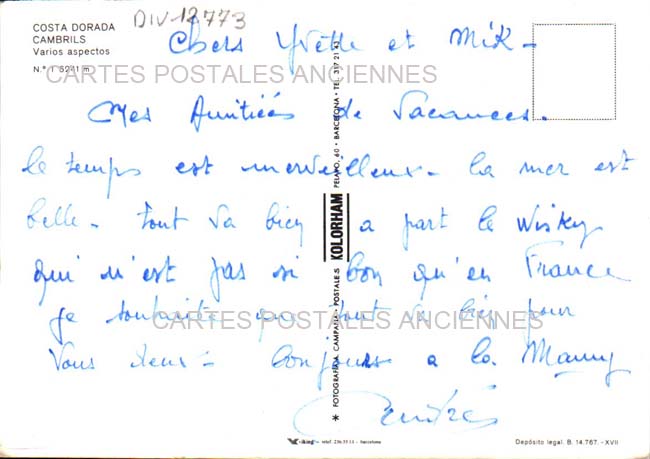 DIV-12773
COSTA DORADA
CAMBRILS
Varios aspectos
N.º 1 5241 m
Chers Yvette et Mik -
CARTES POSTALES ANCIENNES
Mes Amitiées de Vacances.
le temps est merveilleux - la mer est
belle - tout va bien a part le Wisky
qui n'est pas si bon qu'en France
je souhaite que tout va bien pour
CARTES POSTALES ANCIENNES
Vous deux - bonjours a la Mamy
* FOTOGRAFICA CAMPAÑA - POSTALES KOLORHAM PELAYO, 60 • BARCELONA • TEL. 317 21 43
Viking telef. 236 55 11 - barcelona
Depósito legal. B. 14.767. - XVII